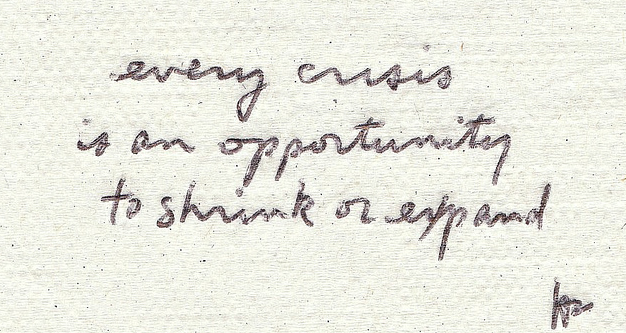 every crisis
is an opportunity
to shrink or expand